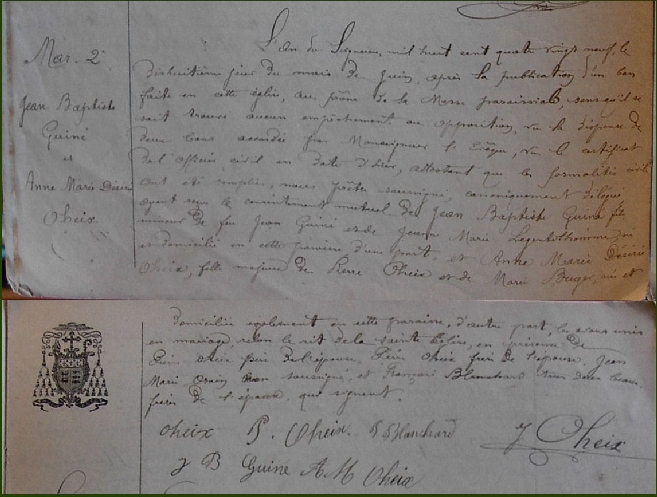 Mar. 2
Jean Baptiste
Guiné
et
Anne Marie Désirée
Oheix
L'An du Seigneur, mil huit cent quatre vingt neuf, le
dixhuitième jour du mois de Juin, après la publication d'un ban
faite en cette église, au prône de la Messe paroissiale, sans qu'il se
soit trouvé aucun empêchement ou opposition, vu la dispense de
deux bans accordée par Monseigneur l'Evêque, vu le certificat
de l'officier civil en date d'hier, attestant que les formalités civiles
ont été remplies, nous prêtre soussigné, canoniquement délégué
ayant reçu le consentement mutuel de Jean Baptiste Guiné fils
mineur de feu Jean Guiné et de Jeanne Marie
et domicilié en cette paroisse d'une part, et Anne Marie Désirée
Oheix, fille majeure de Pierre Oheix et de Marie née et
domiciliée également en cette paroisse, d'autre part, les avons unis
en mariage, selon le rit de la sainte Eglise, en présence de
Oheix père de l'épouse, Oheix frère de l'épouse, Jean
Marie soussigné, et François Blanchard tous deux beaux
frères de l'époux, qui signent.
Oheix P. Oheix F Blanchard J Oheix
J B Guiné A M Oheix